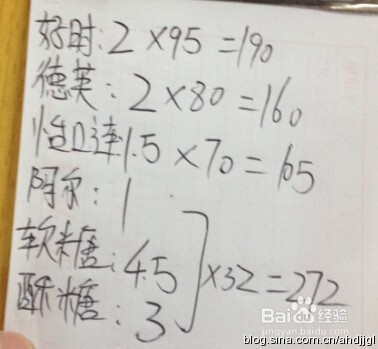 好时:2×95=190
德芙:2×80=160
怡口莲1.5×70=165
阿尔:1
软糖:4.5
酥糖:3
×32=272
Baidu 经验
blog.sina.com.cn/ahdjjgl